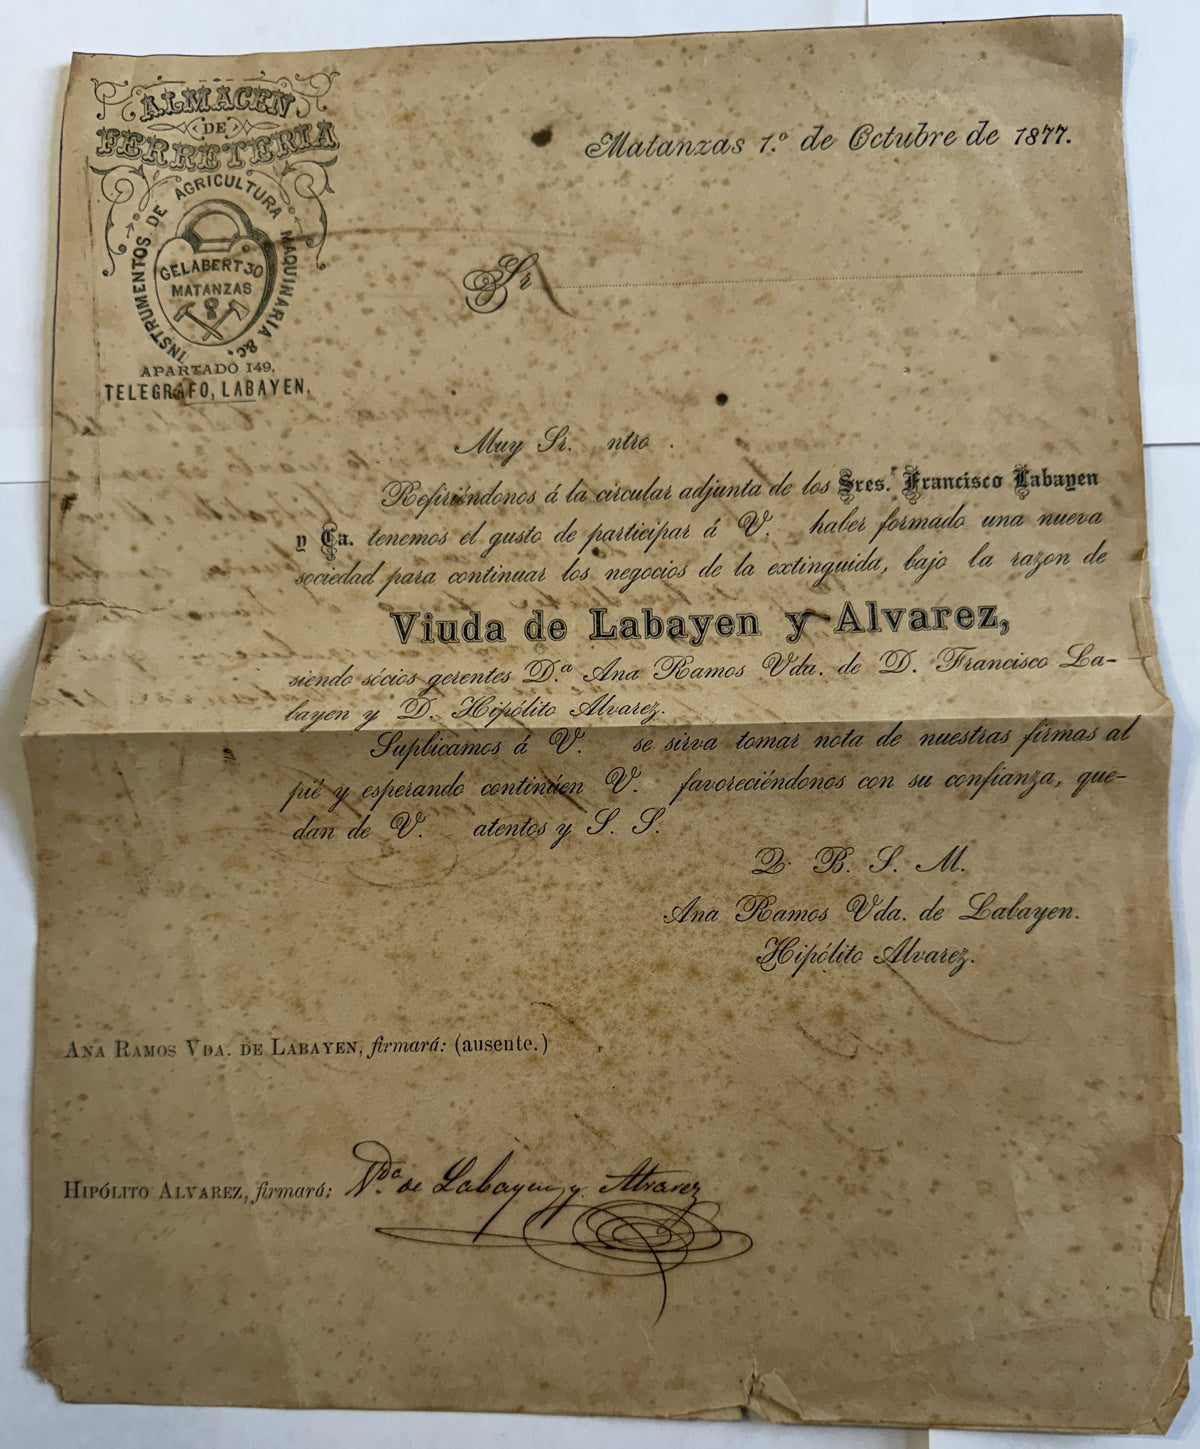 ALMACEN
DE
FERRETERIA
INSTRUMENTOS DE AGRICULTURA MAQUINARIA &c.
GELABERT 30
MATANZAS
APARTADO 149.
TELEGRAFO, LABAYEN,
Matanzas 1.º de Octubre de 1877.
Sr
Muy Sr. ntro .
Refiriéndonos á la circular adjunta de los Sres. Francisco Labayen
y Ca. tenemos el gusto de participar á V. haber formado una nueva
sociedad para continuar los negocios de la extinguida, bajo la razon de
Viuda de Labayen y Alvarez,
siendo sócios gerentes D.ª Ana Ramos Vda. de D. Francisco La-
bayen y D. Hipólito Alvarez.
Suplicamos á V. se sirva tomar nota de nuestras firmas al
pié y esperando continúen V. favoreciéndonos con su confianza, que-
dan de V. atentos y S. S.
Q. B. S. M.
Ana Ramos Vda. de Labayen.
Hipólito Alvarez.
ANA RAMOS VDA. DE LABAYEN, firmará: (ausente.)
HIPÓLITO ALVAREZ, firmará: Vda. de Labayen y Alvarez